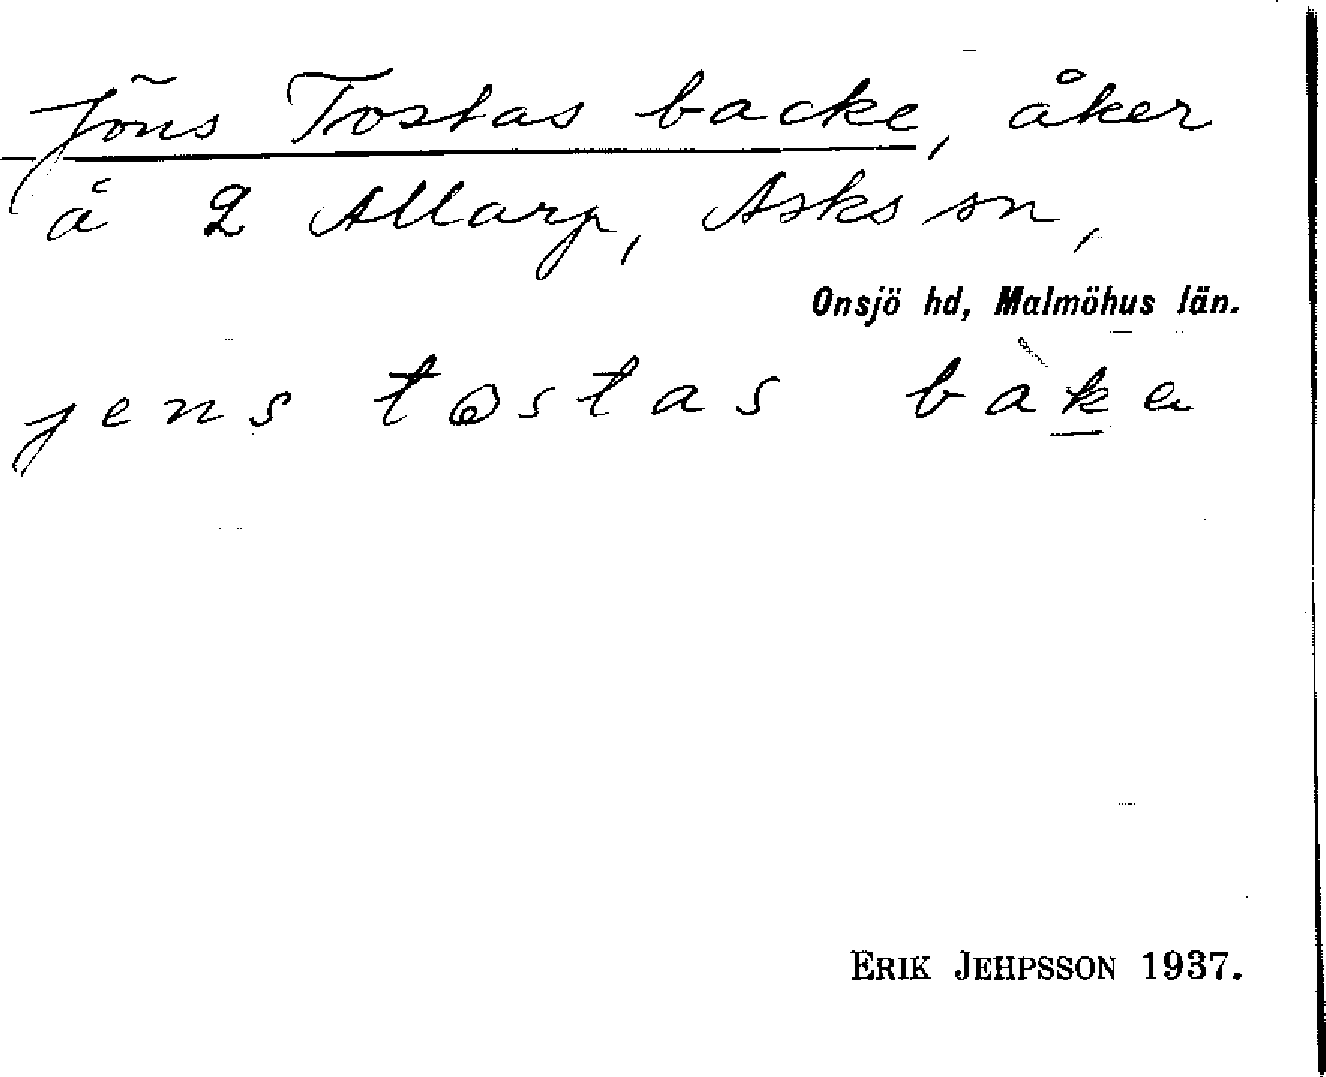 Jöns Tostas backe, åker
å 2 Allarp, Asks sn,
Onsjö hd, Malmöhus län.
jens tostas bàka
ERIK JEHPSSON 1937.